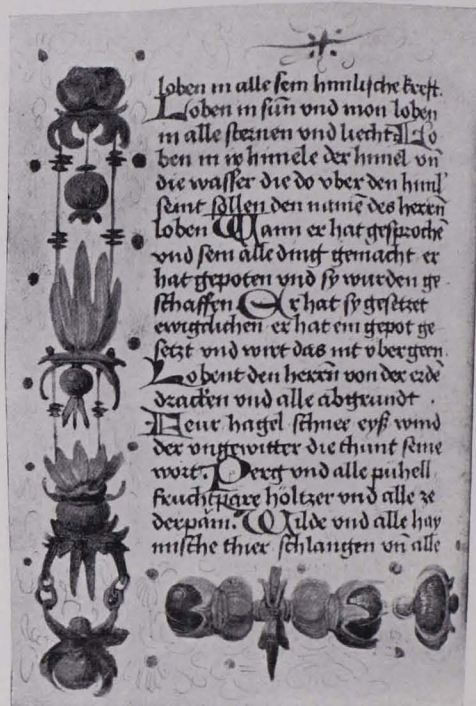 loben in alle sein himlische kreft.
Loben in sun̄ vnd mon loben
in alle sternen vnd liecht Lo
ben in ir himele der himel vn̄
die wasser die do vber den himl
seint sollen den name des herrn
loben Wann er hat gesproche
vnd sein alle ding gemacht er
hat gepoten vnd sy wurden ge
schaffen Er hat sy gesetzet
ewigclichen er hat ein gepot ge
setzt vnd wirt das nit vbergeen
Lobent den herrn von der erde
dracken vnd alle abgrundt .
Feur hagel schnee eyß wind
der vngewitter die thunt seine
wort. Perg vnd alle pühell
fruchtpare höltzer vnd alle ze
derpäm. Wilde vnd alle hay
mische thier schlangen vn̄ alle